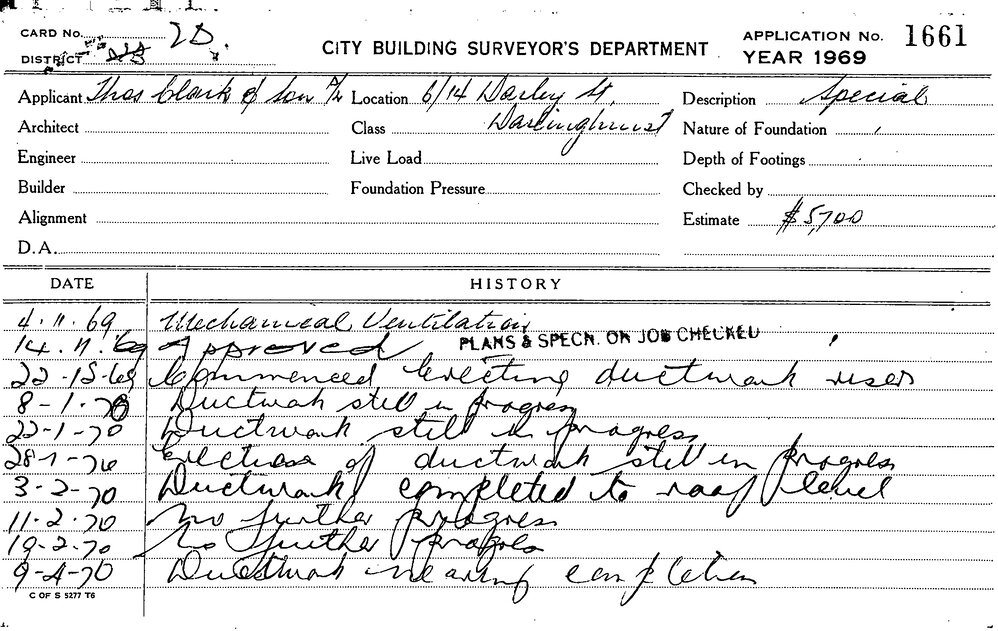 CARD No. 2D.
CITY BUILDING SURVEYOR'S DEPARTMENT
APPLICATION No. 1661
DISTRICT
YEAR 1969
Applicant Thos Clark & Son P/L Location 6/14 Darley St, Description Special
Architect Class Darlinghurst Nature of Foundation
Engineer Live Load Depth of Footings
Builder Foundation Pressure Checked by
Alignment Estimate $5,700
D.A.
DATE HISTORY
4.11.69 Mechanical Ventilation
14.11.69 Approved PLANS & SPECN. ON JOB CHECKED
22-12-69 Commenced erecting ductwork riser
8-1-70 Ductwork still in progress
22-1-70 Ductwork still in progress
28-1-70 Erection of ductwork still in progress
3-2-70 Ductwork completed to roof level
11-2-70 No further progress
19-2-70 No further progress
9-4-70 Ductwork nearing completion
C OF S 5277 T6